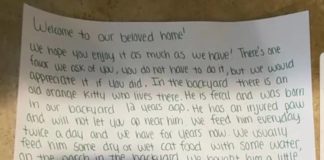 Welcome to our beloved home!
We hope you enjoy it as much as we have! There's one
favor we ask of you, you do not have to do it, but we would
appreciate it if you did. In the backyard there is an
old orange kitty who lives there. He is feral and was born
in our backyard 12 years ago. He has an injured paw
and will not let you go near him. We feed him everyday
twice a day and we have for years now. We usually
feed him some dry or wet cat food with some water,
on the porch in the backyard. We bought him a little